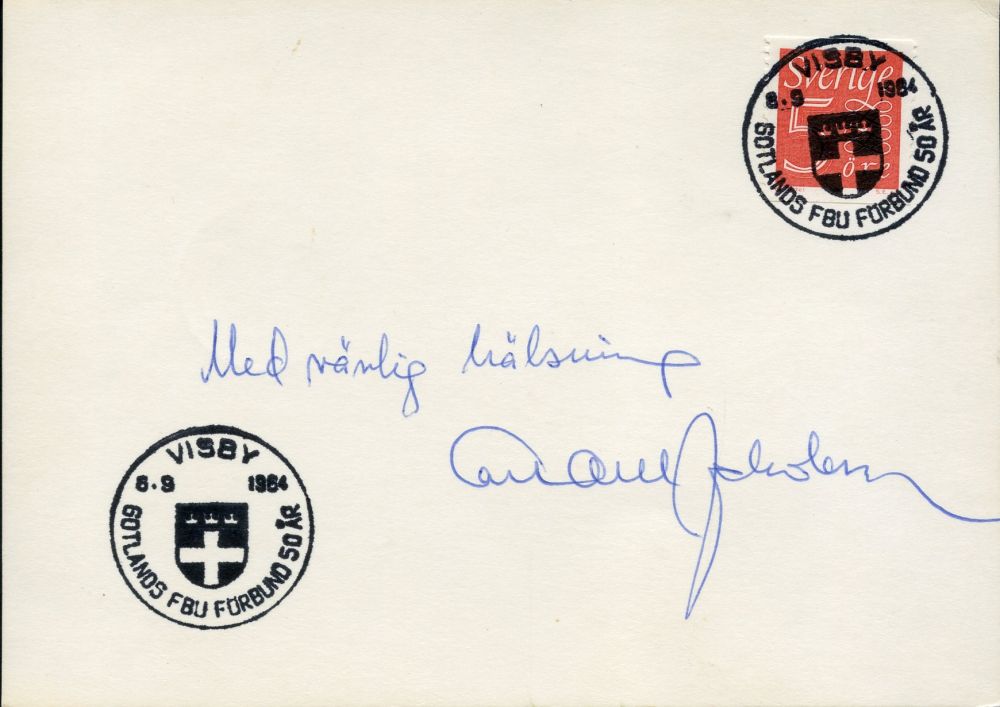 VISBY
6.9 1984
GOTLANDS FBU FÖRBUND 50 ÅR
Sverige
5
öre
Med vänlig hälsning
VISBY
6.9 1984
GOTLANDS FBU FÖRBUND 50 ÅR